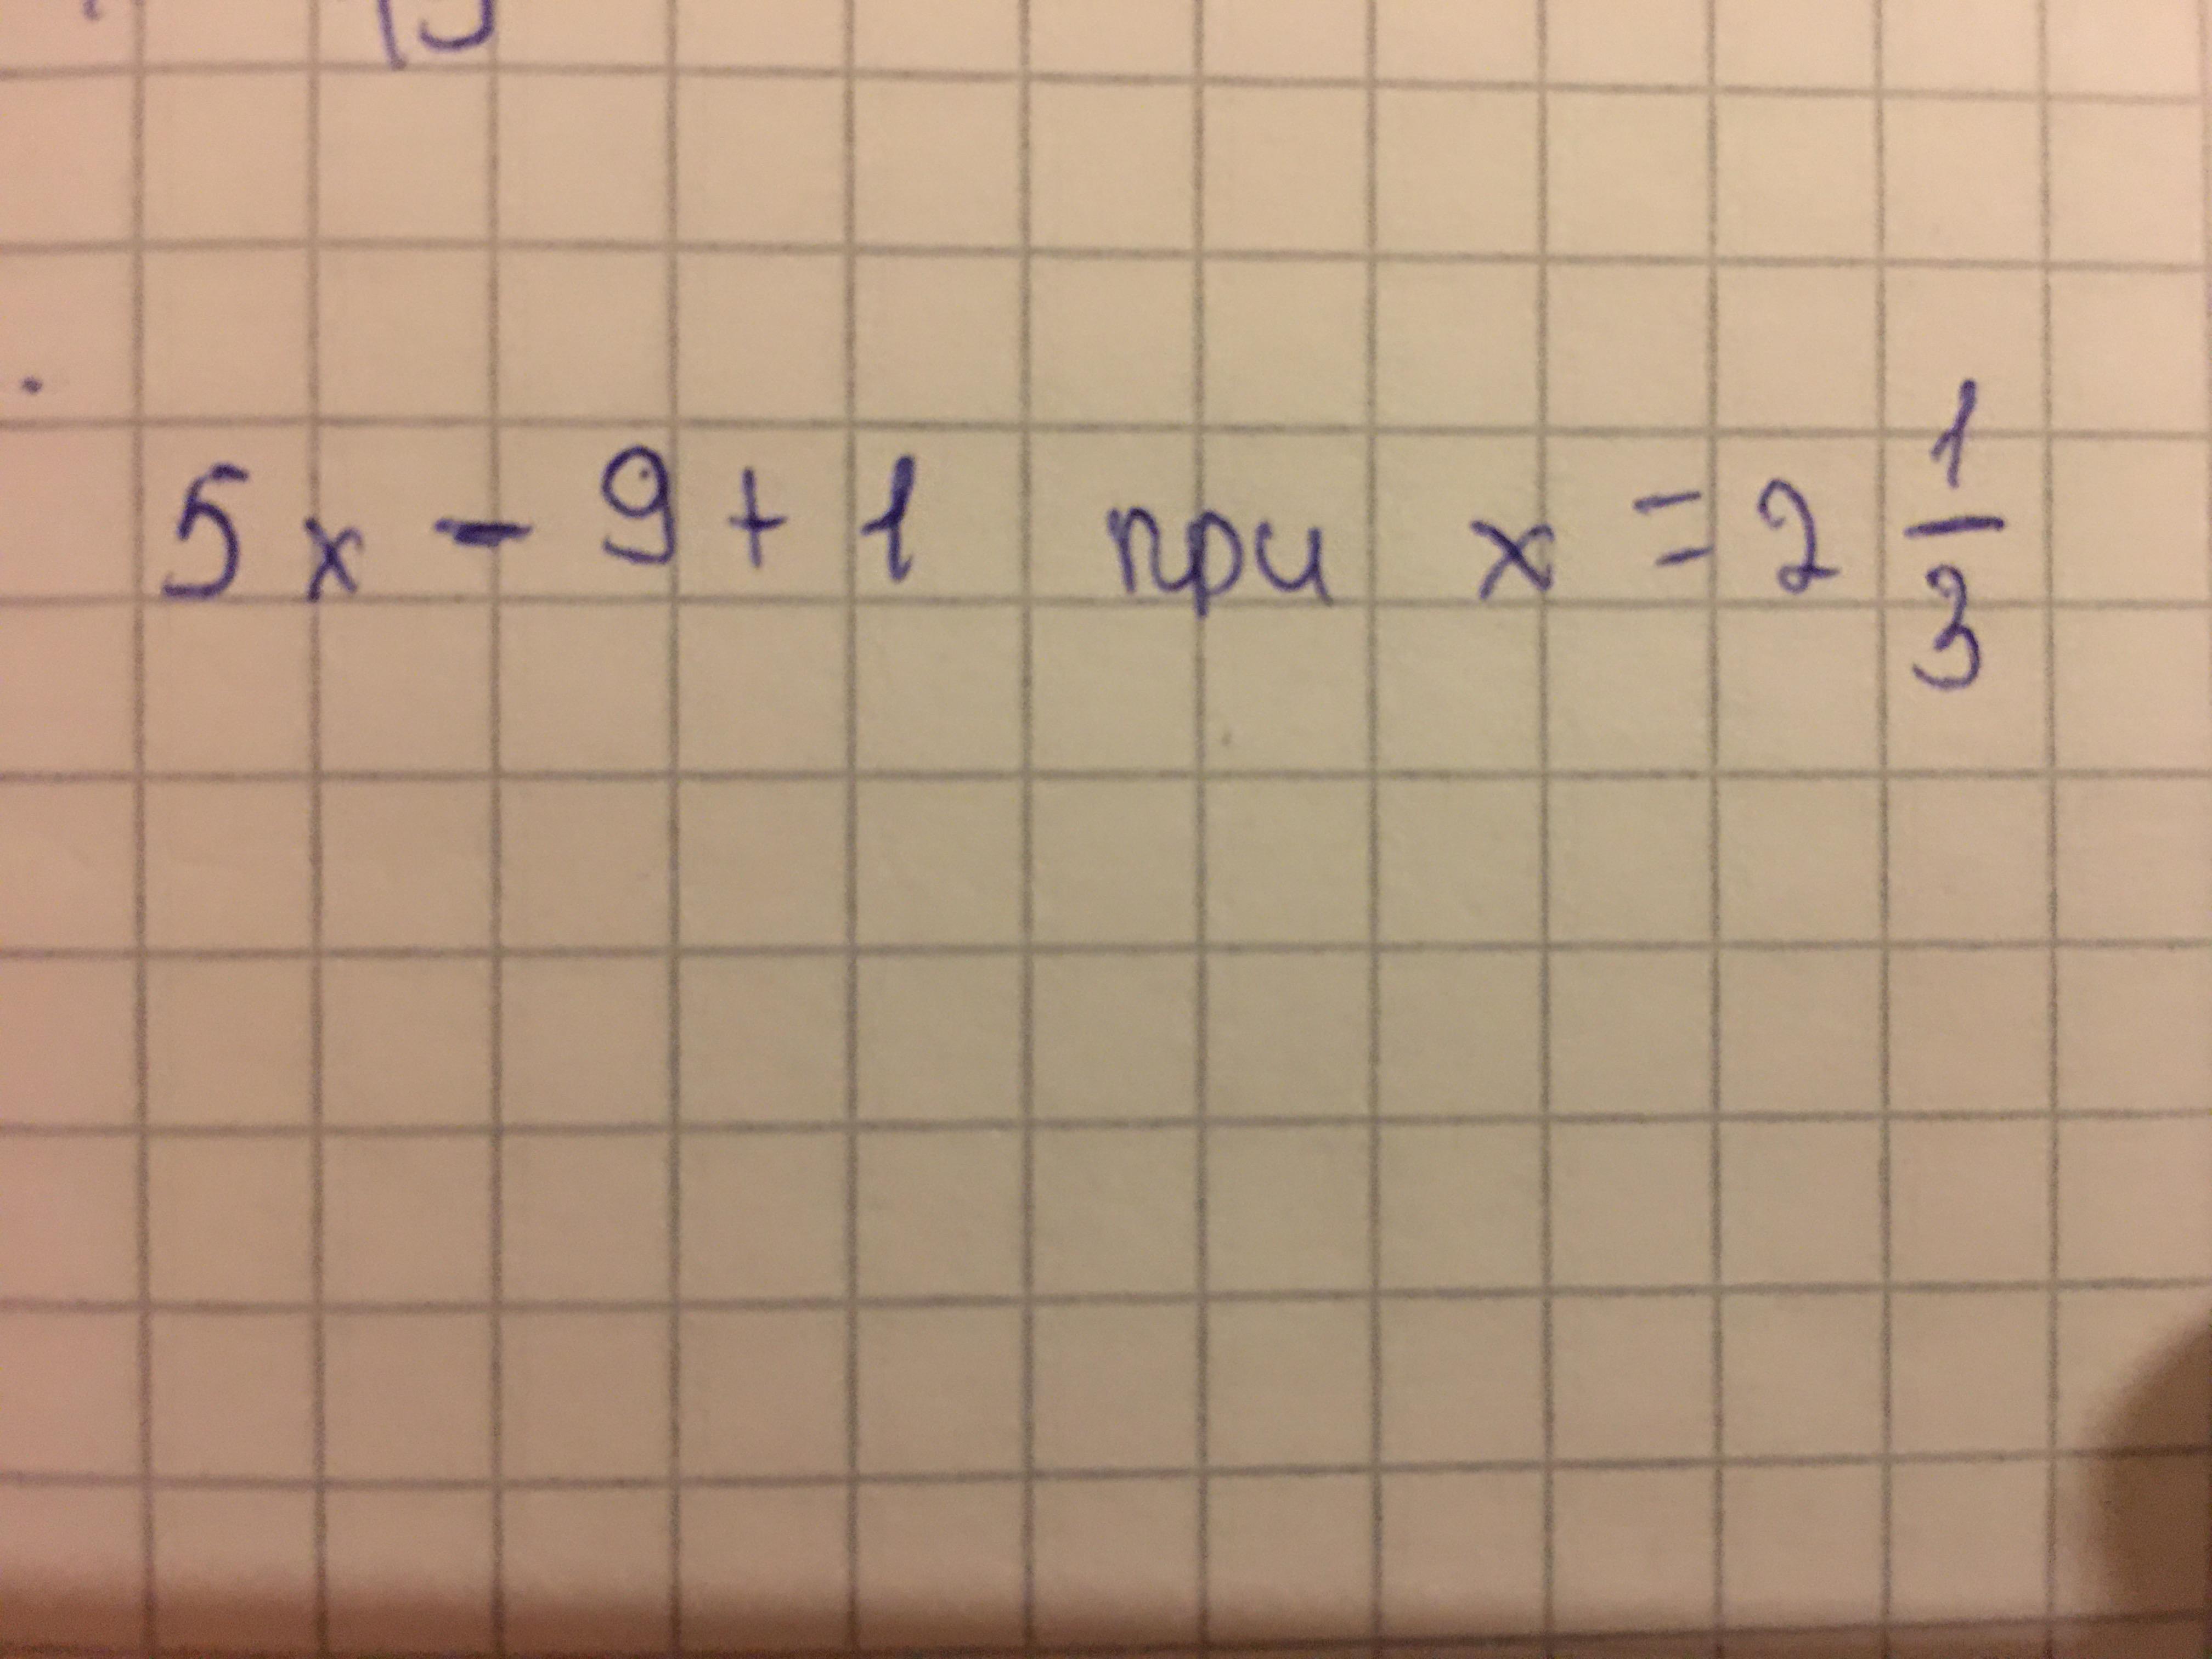 5x - 9 + 1 при x = 2 1/3